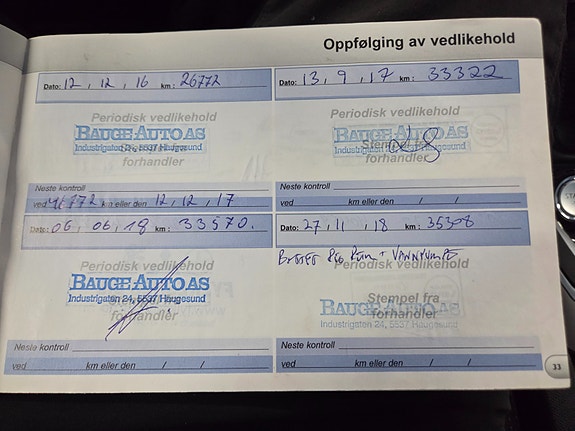 Oppfølging av vedlikehold
Dato: 12, 12, 16 km: 26772
Periodisk vedlikehold
BAUGE-AUTO AS
Industrigaten 24, 5537 Haugesund
forhandler
Neste kontroll
ved 41772 km eller den 12, 12, 17
Dato: 13, 9, 17 km: 33322
Periodisk vedlikehold
BAUGE-AUTO AS
Stempel fra
Industrigaten 24, 5537 Haugesund
forhandler
Neste kontroll
ved km eller den / /
Dato: 06, 06, 18 km: 33570.
Periodisk vedlikehold
BAUGE-AUTO AS
Industrigaten 24, 5537 Haugesund
forhandler
Neste kontroll
ved km eller den / /
Dato: 27, 11, 18 km: 35308
BYTTET REG REIM + VANNPUMPE
Periodisk vedlikehold
Stempel fra
BAUGE-AUTO AS
forhandler
Industrigaten 24, 5537 Haugesund
Neste kontroll
ved km eller den / /
33